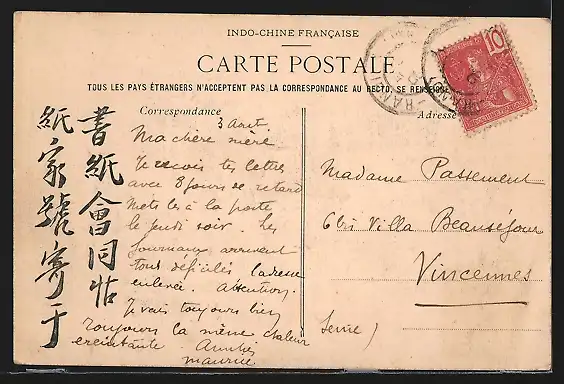 INDO-CHINE FRANÇAISE
CARTE POSTALE
TOUS LES PAYS ÉTRANGERS N'ACCEPTENT PAS LA CORRESPONDANCE AU RECTO, SE RENSEIGNE
Correspondance
Adresse
10
3 Aout.
Ma chère mère
Je reçois tes lettres
avec 8 jours de retard
Mets les à la poste
le jeudi soir. Les
Journaux arrivent
tout déficelés l'adresse
enlevée. Attention.
Je vais toujours bien
toujours la même chaleur
éreintante Amitiés
Maurice
Madame Passement
6 bis Villa Beauséjour
Vincennes
Seine)
書紙會同帖
紙家號寄于